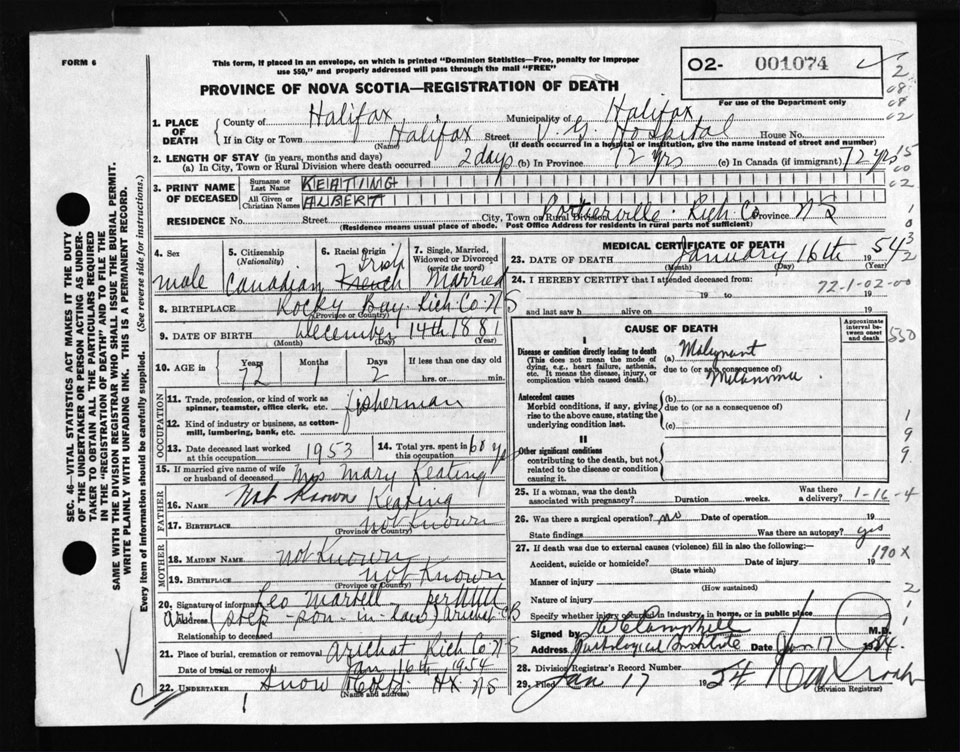 FORM 6
This form, if placed in an envelope, on which is printed "Dominion Statistics—Free, penalty for improper
use $50," and properly addressed will pass through the mail "FREE"
O2- 001074
For use of the Department only
PROVINCE OF NOVA SCOTIA—REGISTRATION OF DEATH
1. PLACE OF DEATH
County of Halifax Municipality of Halifax
If in City or Town Halifax Street V. G. Hospital House No.
(Name) (If death occurred in a hospital or institution, give the name instead of street and number)
2. LENGTH OF STAY (in years, months and days)
(a) In City, Town or Rural Division where death occurred 2 days (b) In Province 72 yrs (c) In Canada (if immigrant) 72 yrs
3. PRINT NAME OF DECEASED
Surname or Last Name KEATING
All Given or Christian Names ALBERT
RESIDENCE No. Street City, Town or Rural Division Rich. Co Province N S
(Residence means usual place of abode. Post Office Address for residents in rural parts not sufficient)
4. Sex male
5. Citizenship (Nationality) Canadian
6. Racial Origin Irish French
7. Single, Married, Widowed or Divorced (write the word) Married
8. BIRTHPLACE Rocky Bay Rich Co N S
(Province or Country)
9. DATE OF BIRTH December 14th 1881
(Month) (Day) (Year)
10. AGE in Years 72 Months 1 Days 2 If less than one day old hrs. or min.
OCCUPATION
11. Trade, profession, or kind of work as spinner, teamster, office clerk, etc. fisherman
12. Kind of industry or business, as cotton-mill, lumbering, bank, etc.
13. Date deceased last worked at this occupation 1953
14. Total yrs. spent in this occupation 60 yrs
15. If married give name of wife or husband of deceased Mrs Mary Keating
FATHER
16. NAME Not Known Keating
17. BIRTHPLACE not Known
(Province or Country)
MOTHER
18. MAIDEN NAME not Known
19. BIRTHPLACE not Known
(Province or Country)
20. Signature of informant Leo Martell per
Address (step-son-in-law) Arichat CB
Relationship to deceased
21. Place of burial, cremation or removal Arichat Rich Co N S
Date of burial or removal Jan 16th 1954
22. UNDERTAKER Snow Hx. NS
(Name and address)
MEDICAL CERTIFICATE OF DEATH
23. DATE OF DEATH January 16th 1954
(Month) (Day) (Year)
24. I HEREBY CERTIFY that I attended deceased from:
72-1-02-00
19 to 19
and last saw h alive on 19
CAUSE OF DEATH
Approximate interval between onset and death
I
Disease or condition directly leading to death
(This does not mean the mode of dying, e.g., heart failure, asthenia, etc. It means the disease, injury, or complication which caused death.)
(a) Malignant
due to (or as a consequence of)
Melanoma
Antecedent causes
Morbid conditions, if any, giving rise to the above cause, stating the underlying condition last.
(b)
due to (or as a consequence of)
(c)
II
Other significant conditions
contributing to the death, but not related to the disease or condition causing it.
25. If a woman, was the death associated with pregnancy? Duration weeks. Was there a delivery? 1-16-4
26. Was there a surgical operation? no Date of operation 19
State findings Was there an autopsy? yes
27. If death was due to external causes (violence) fill in also the following:—
190X
Accident, suicide or homicide? Date of injury 19
(State which)
Manner of injury
(How sustained)
Nature of injury
Specify whether injury occurred in industry, in home, or in public place
Signed by Campbell M.D.
Address Pathological Institute Date Jan 17 1954
28. Division Registrar's Record Number
29. Filed Jan 17 1954
(Division Registrar)
SEC. 46—VITAL STATISTICS ACT MAKES IT THE DUTY
OF THE UNDERTAKER OR PERSON ACTING AS UNDER-
TAKER TO OBTAIN ALL THE PARTICULARS REQUIRED
IN THE "REGISTRATION OF DEATH" AND TO FILE THE
SAME WITH THE DIVISION REGISTRAR WHO SHALL ISSUE THE BURIAL PERMIT.
WRITE PLAINLY WITH UNFADING INK. THIS IS A PERMANENT RECORD.
Every item of information should be carefully supplied. (See reverse side for instructions.)